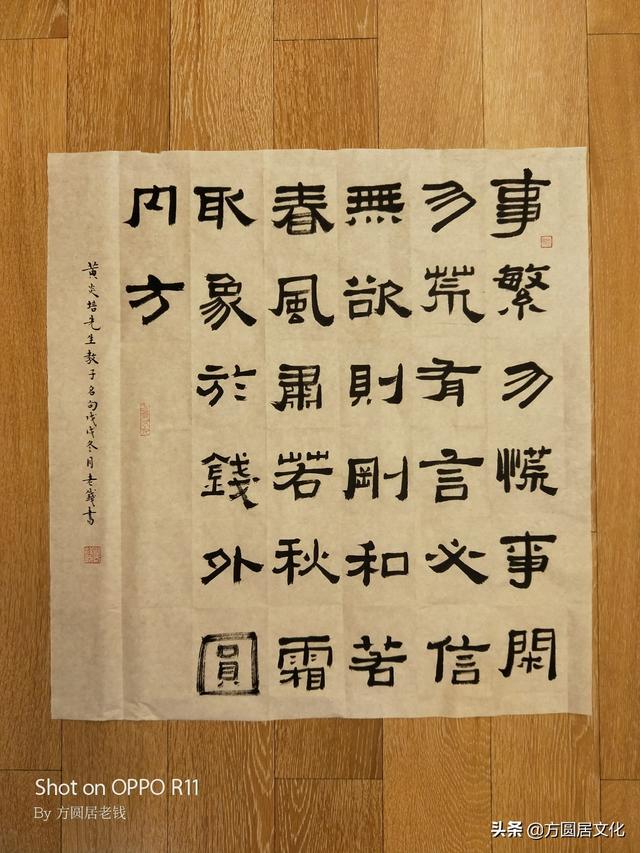 事繁勿慌事閑
勿荒有言必信
無欲則剛和若
春風肅若秋霜
取象於錢外圓
内方
黄炎培先生教子名句戊戌冬月老錢書
Shot on OPPO R11
By 方圆居老钱
头条 @方圆居文化